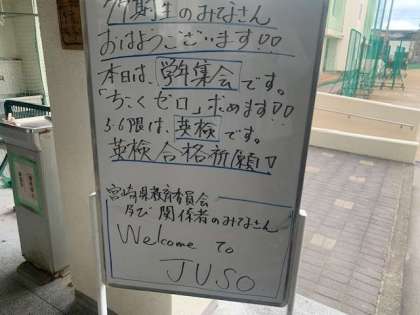 77期生のみなさん
おはようございます!!
本日は、学年集会です。
「ちこくゼロ」求めます!!
5・6限は、英検です。
英検合格祈願!!
宮崎県教育委員会
及び関係者のみなさん
Welcome To
JUSO